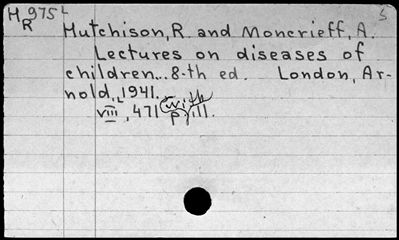 H 975 L 5
R Hutchison, R. and Moncrieff, A.
Lectures on diseases of
children... 8-th ed. London, Ar-
nold, 1941.
viii, 471 p. with ill.